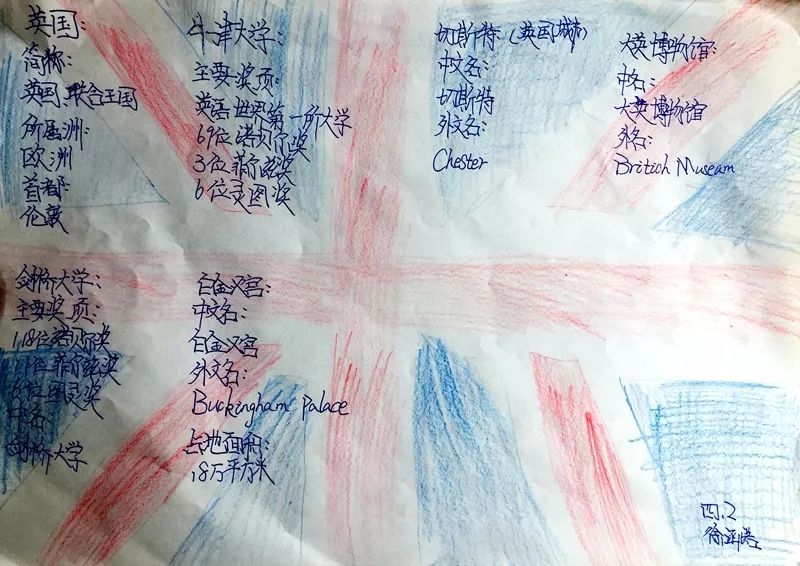 英国:
简称:
英国 联合王国
所属洲:
欧洲
首都:
伦敦
牛津大学:
主要奖项:
英语世界第一所大学
69位诺贝尔奖
3位菲尔兹奖
6位灵图奖
切斯特(英国城市)
中文名:
切斯特
外文名:
Chester
大英博物馆:
中名:
大英博物馆
外名:
Britich Museam
剑桥大学:
主要奖项:
118位诺贝尔奖
位菲尔兹奖
位图灵奖
中名
剑桥大学
白金汉宫:
中文名:
白金汉宫
外文名:
Buckingham Palace
占地面积:
1.8万平方米
四.2
徐